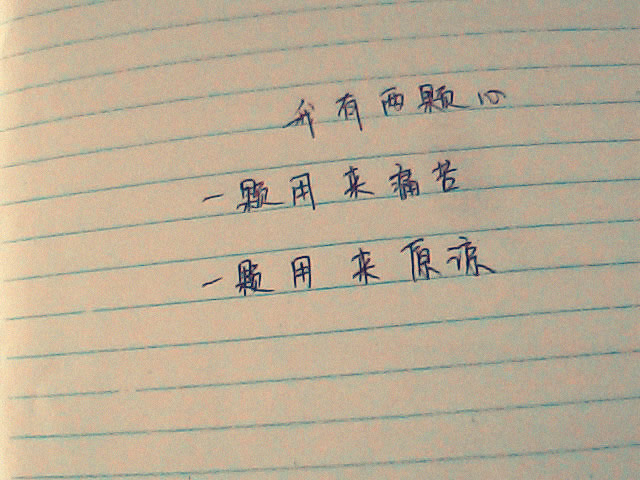 我有两颗心
一颗用来痛苦
一颗用来原谅